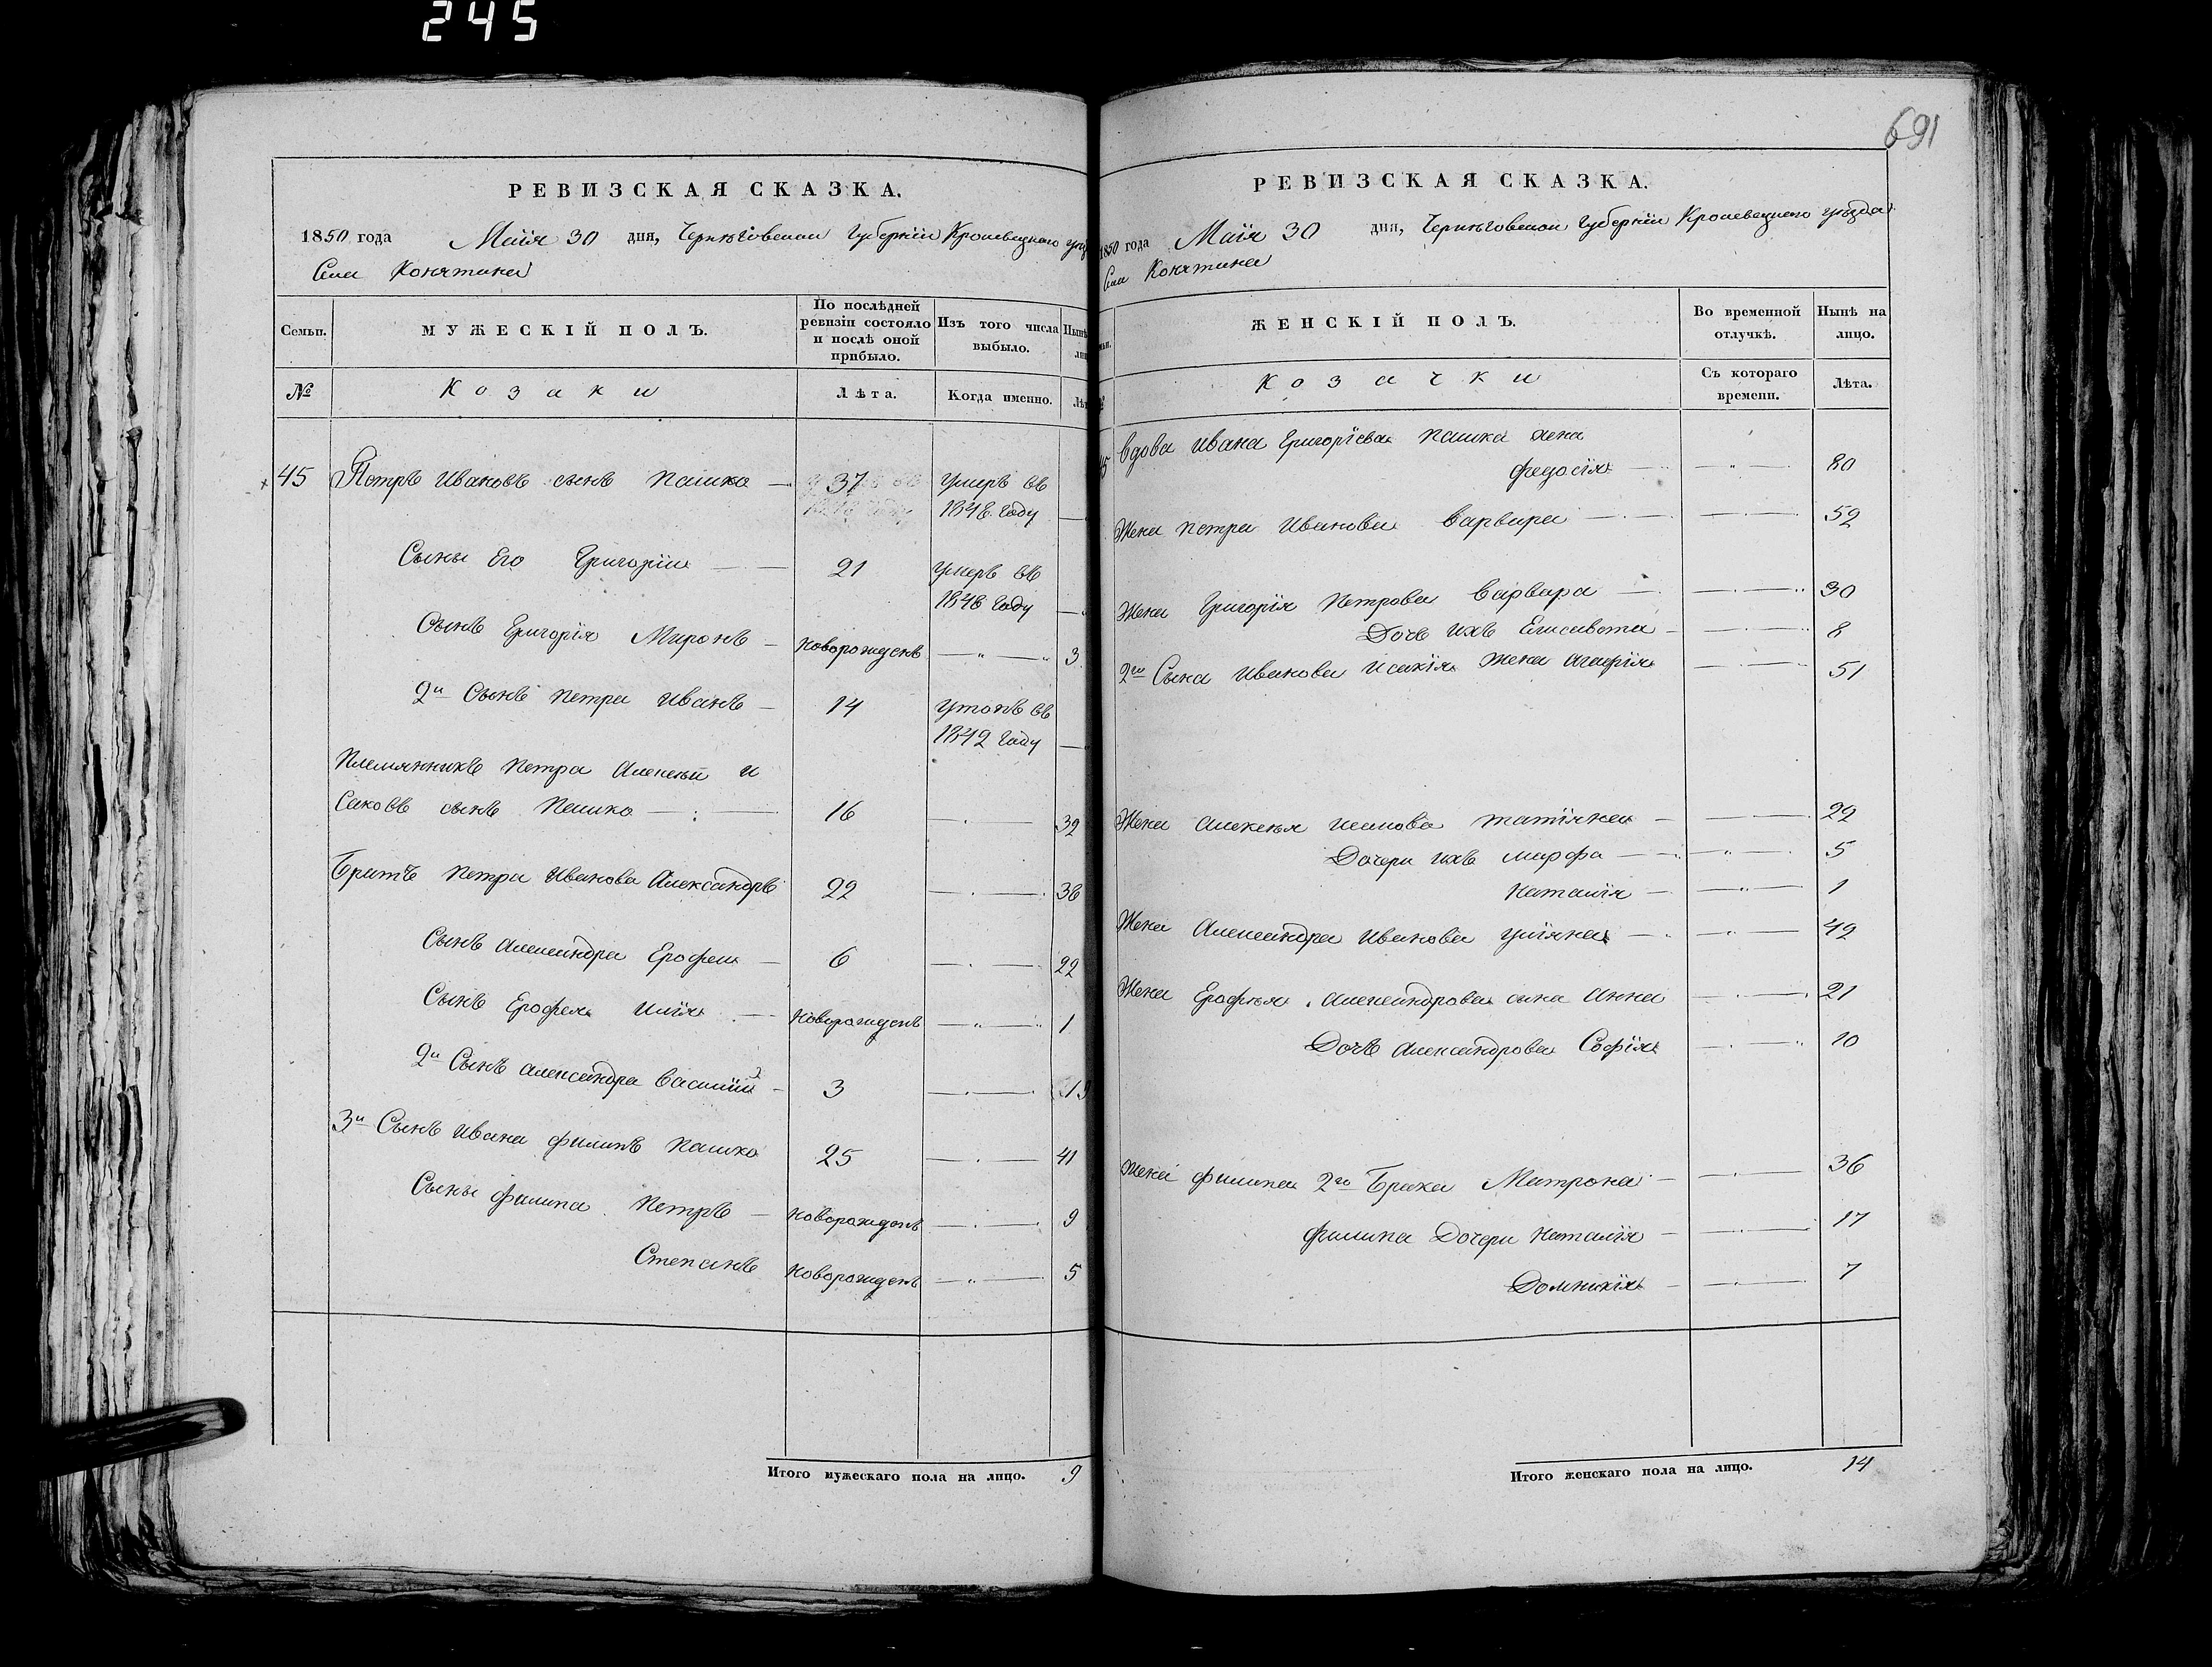 245
691
РЕВИЗСКАЯ СКАЗКА.
1850 года Маія 30 дня, Черниговской Губерніи Кролевецкого уез
Села Конятина
Семьи. МУЖЕСКІЙ ПОЛЪ. По послѣдней ревизіи состояло и послѣ оной прибыло. Изъ того числа выбыло. Нынѣ
№ Козаки Лѣта. Когда именно. Лѣт
45 Петръ Ивановъ сынъ Пашко — 37 Умеръ въ
1848 году —
Сыны Его Григорій — — 21 умеръ въ
1848 году —
Сынъ Григорія Миронъ — новорожденъ — " — 3
2й Сынъ Петра Иванъ — 14 утопъ въ
1842 году —
Племянникъ Петра Алексѣй И
саковъ сынъ Пашко — 16 — 32
Братъ Петра Иванова Александръ 22 — 38
Сынъ Александра Ерофей — 6 — 22
Сынъ Ерофея Илія — Новорожденъ — " — 1
2й Сынъ Александра Василій — 3 — 19
3й Сынъ Ивана Филипъ Пашко 25 — 41
Сыны Филипа Петръ — Новорожденъ — 9
Степанъ Новорожденъ — " — 5
Итого мужескаго пола на лицо. 9
РЕВИЗСКАЯ СКАЗКА.
1850 года Маія 30 дня, Черниговской Губерніи Кролевецкого уѣзда
Села Конятина
ЖЕНСКІЙ ПОЛЪ. Во временной отлучкѣ. Нынѣ на лицо.
№ Козачки Съ котораго времени. Лѣта.
45 Вдова Ивана Григоріева Пашка жена
Федосія — — " — 80
Жена Петра Иванова Варвара — — 52
Жена Григорія Петрова Варвара — — 30
Дочь ихъ Елисавета — — 8
2го Сына Иванова Исакія жена Агафія — 51
Жена Алексѣя Исакова Татіяна — — 29
Дочери ихъ Марфа — — " — 5
Наталія — — " — 1
Жена Александра Иванова Уліяна — — " — 42
Жена Ерофѣя Александрова сына Анна — 21
Дочь Александрова Софія — 10
Жена Филипа 2го Брака Матрона — — 36
Филипа Дочери Наталія — — 17
Домникія — — 7
Итого женскаго пола на лицо. 14